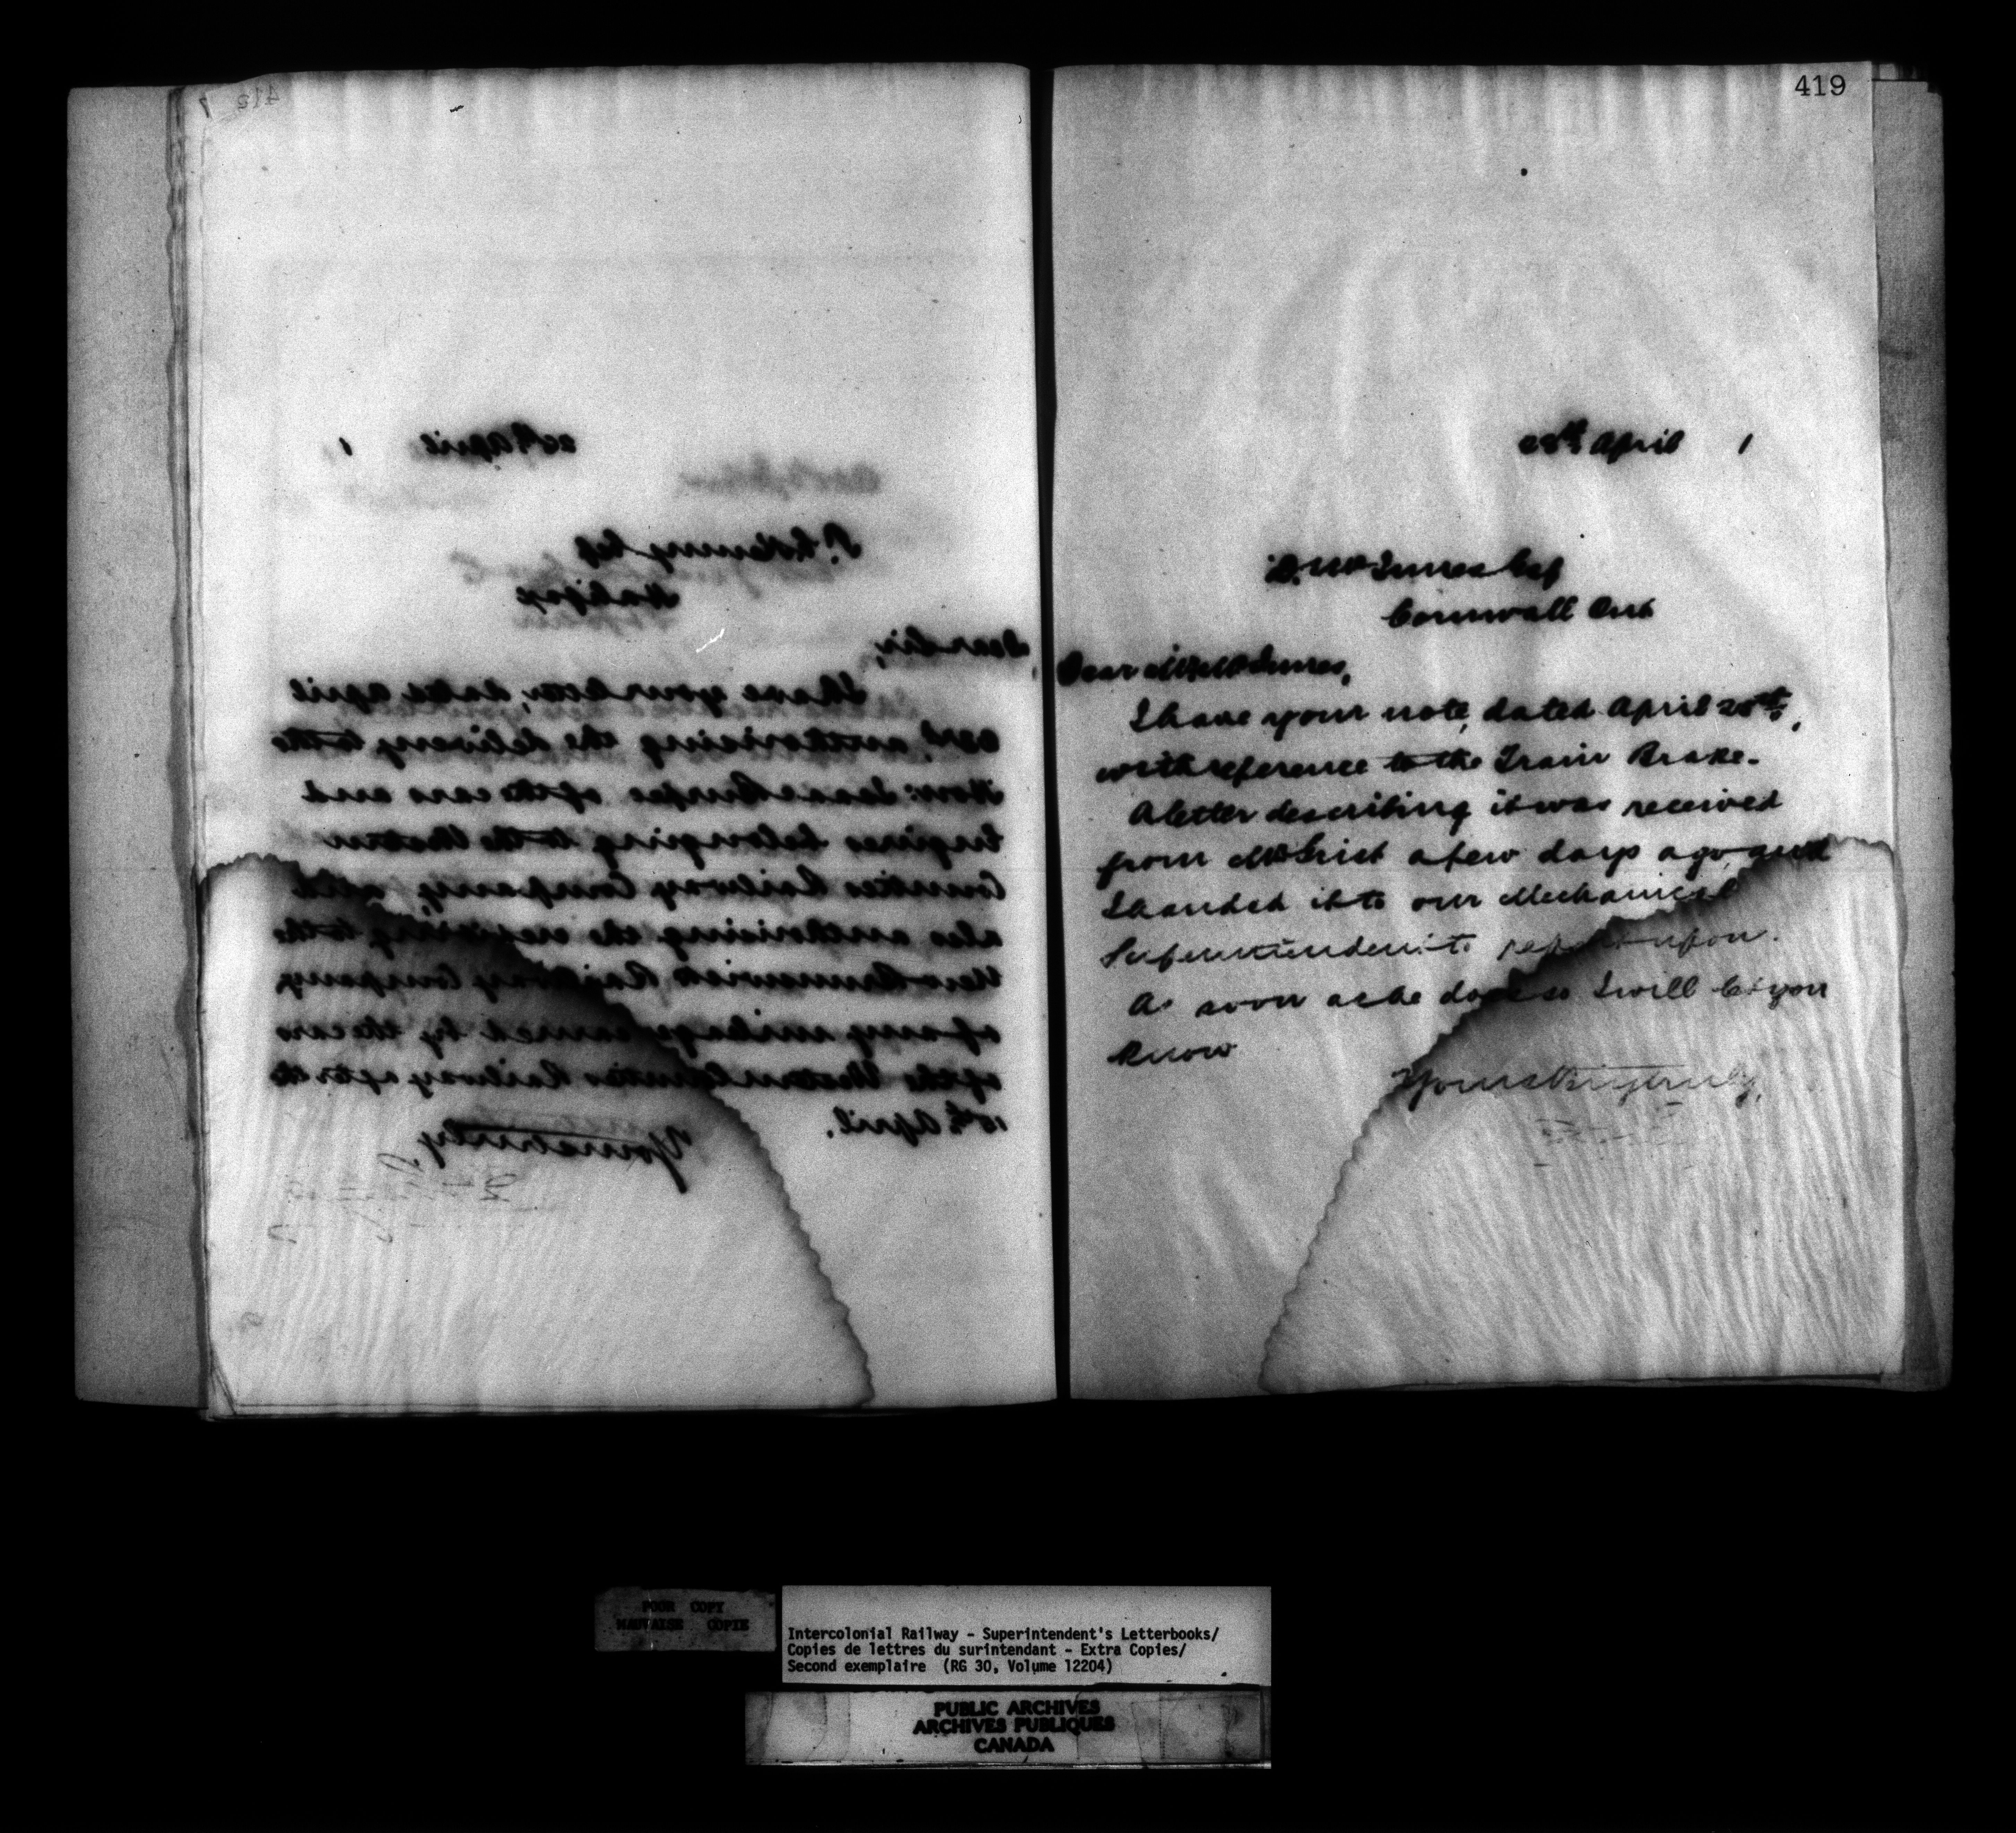 26th April 1
Halifax
Dear Sir,
I have your letter, dated April
authorising the delivery to the
of the cars and
Engines belonging to the Western
Counties Railway Company, and
also authorising the to the
New Brunswick Railway Company
of any mileage earned by the cars
of the Western Counties Railway after the
15th April.
Yours truly,
419
28th April 1
D. McInnes Esq
Cornwall Ont
Dear Mr McInnes,
I have your note, dated April 25th,
with reference to the Train Brake.
A letter describing it was received
from a few days ago, and
I handed it to our Mechanical
Superintendent to report upon.
As soon as he does so I will let you
know
Yours truly,
POOR COPY
MAUVAISE COPIE
Intercolonial Railway - Superintendent's Letterbooks/
Copies de lettres du surintendant - Extra Copies/
Second exemplaire (RG 30, Volume 12204)
PUBLIC ARCHIVES
ARCHIVES PUBLIQUES
CANADA